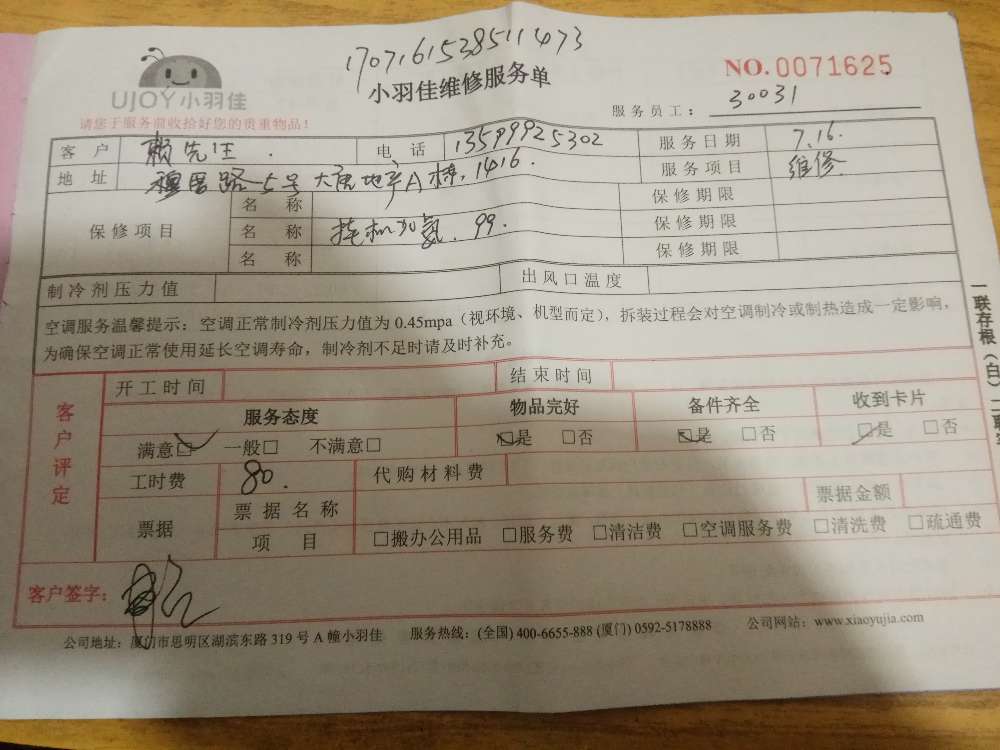 170716153851 1473
UJOY小羽佳
小羽佳维修服务单
NO.0071625
请您于服务前收拾好您的贵重物品！
服务员工： 30031
客户 赖先生. 电话 13599925302 服务日期 7.16.
地址 路 5号 大唐地产A栋, 1416. 服务项目 维修
保修项目 名称 保修期限
名称 挂机加氟. 99. 保修期限
名称 保修期限
制冷剂压力值 出风口温度
空调服务温馨提示：空调正常制冷剂压力值为 0.45mpa（视环境、机型而定），拆装过程会对空调制冷或制热造成一定影响，
为确保空调正常使用延长空调寿命，制冷剂不足时请及时补充。
客户评定
开工时间 结束时间
服务态度 物品完好 备件齐全 收到卡片
满意☑ 一般□ 不满意□ ☑是 □否 ☑是 □否 ☑是 □否
工时费 80. 代购材料费
票据 票据名称 票据金额
项目 □搬办公用品 □服务费 □清洁费 □空调服务费 □清洗费 □疏通费
客户签字：
公司地址：厦门市思明区湖滨东路 319 号 A 幢小羽佳 服务热线：(全国) 400-6655-888 (厦门) 0592-5178888 公司网站：www.xiaoyujia.com
一联存根（白）二联